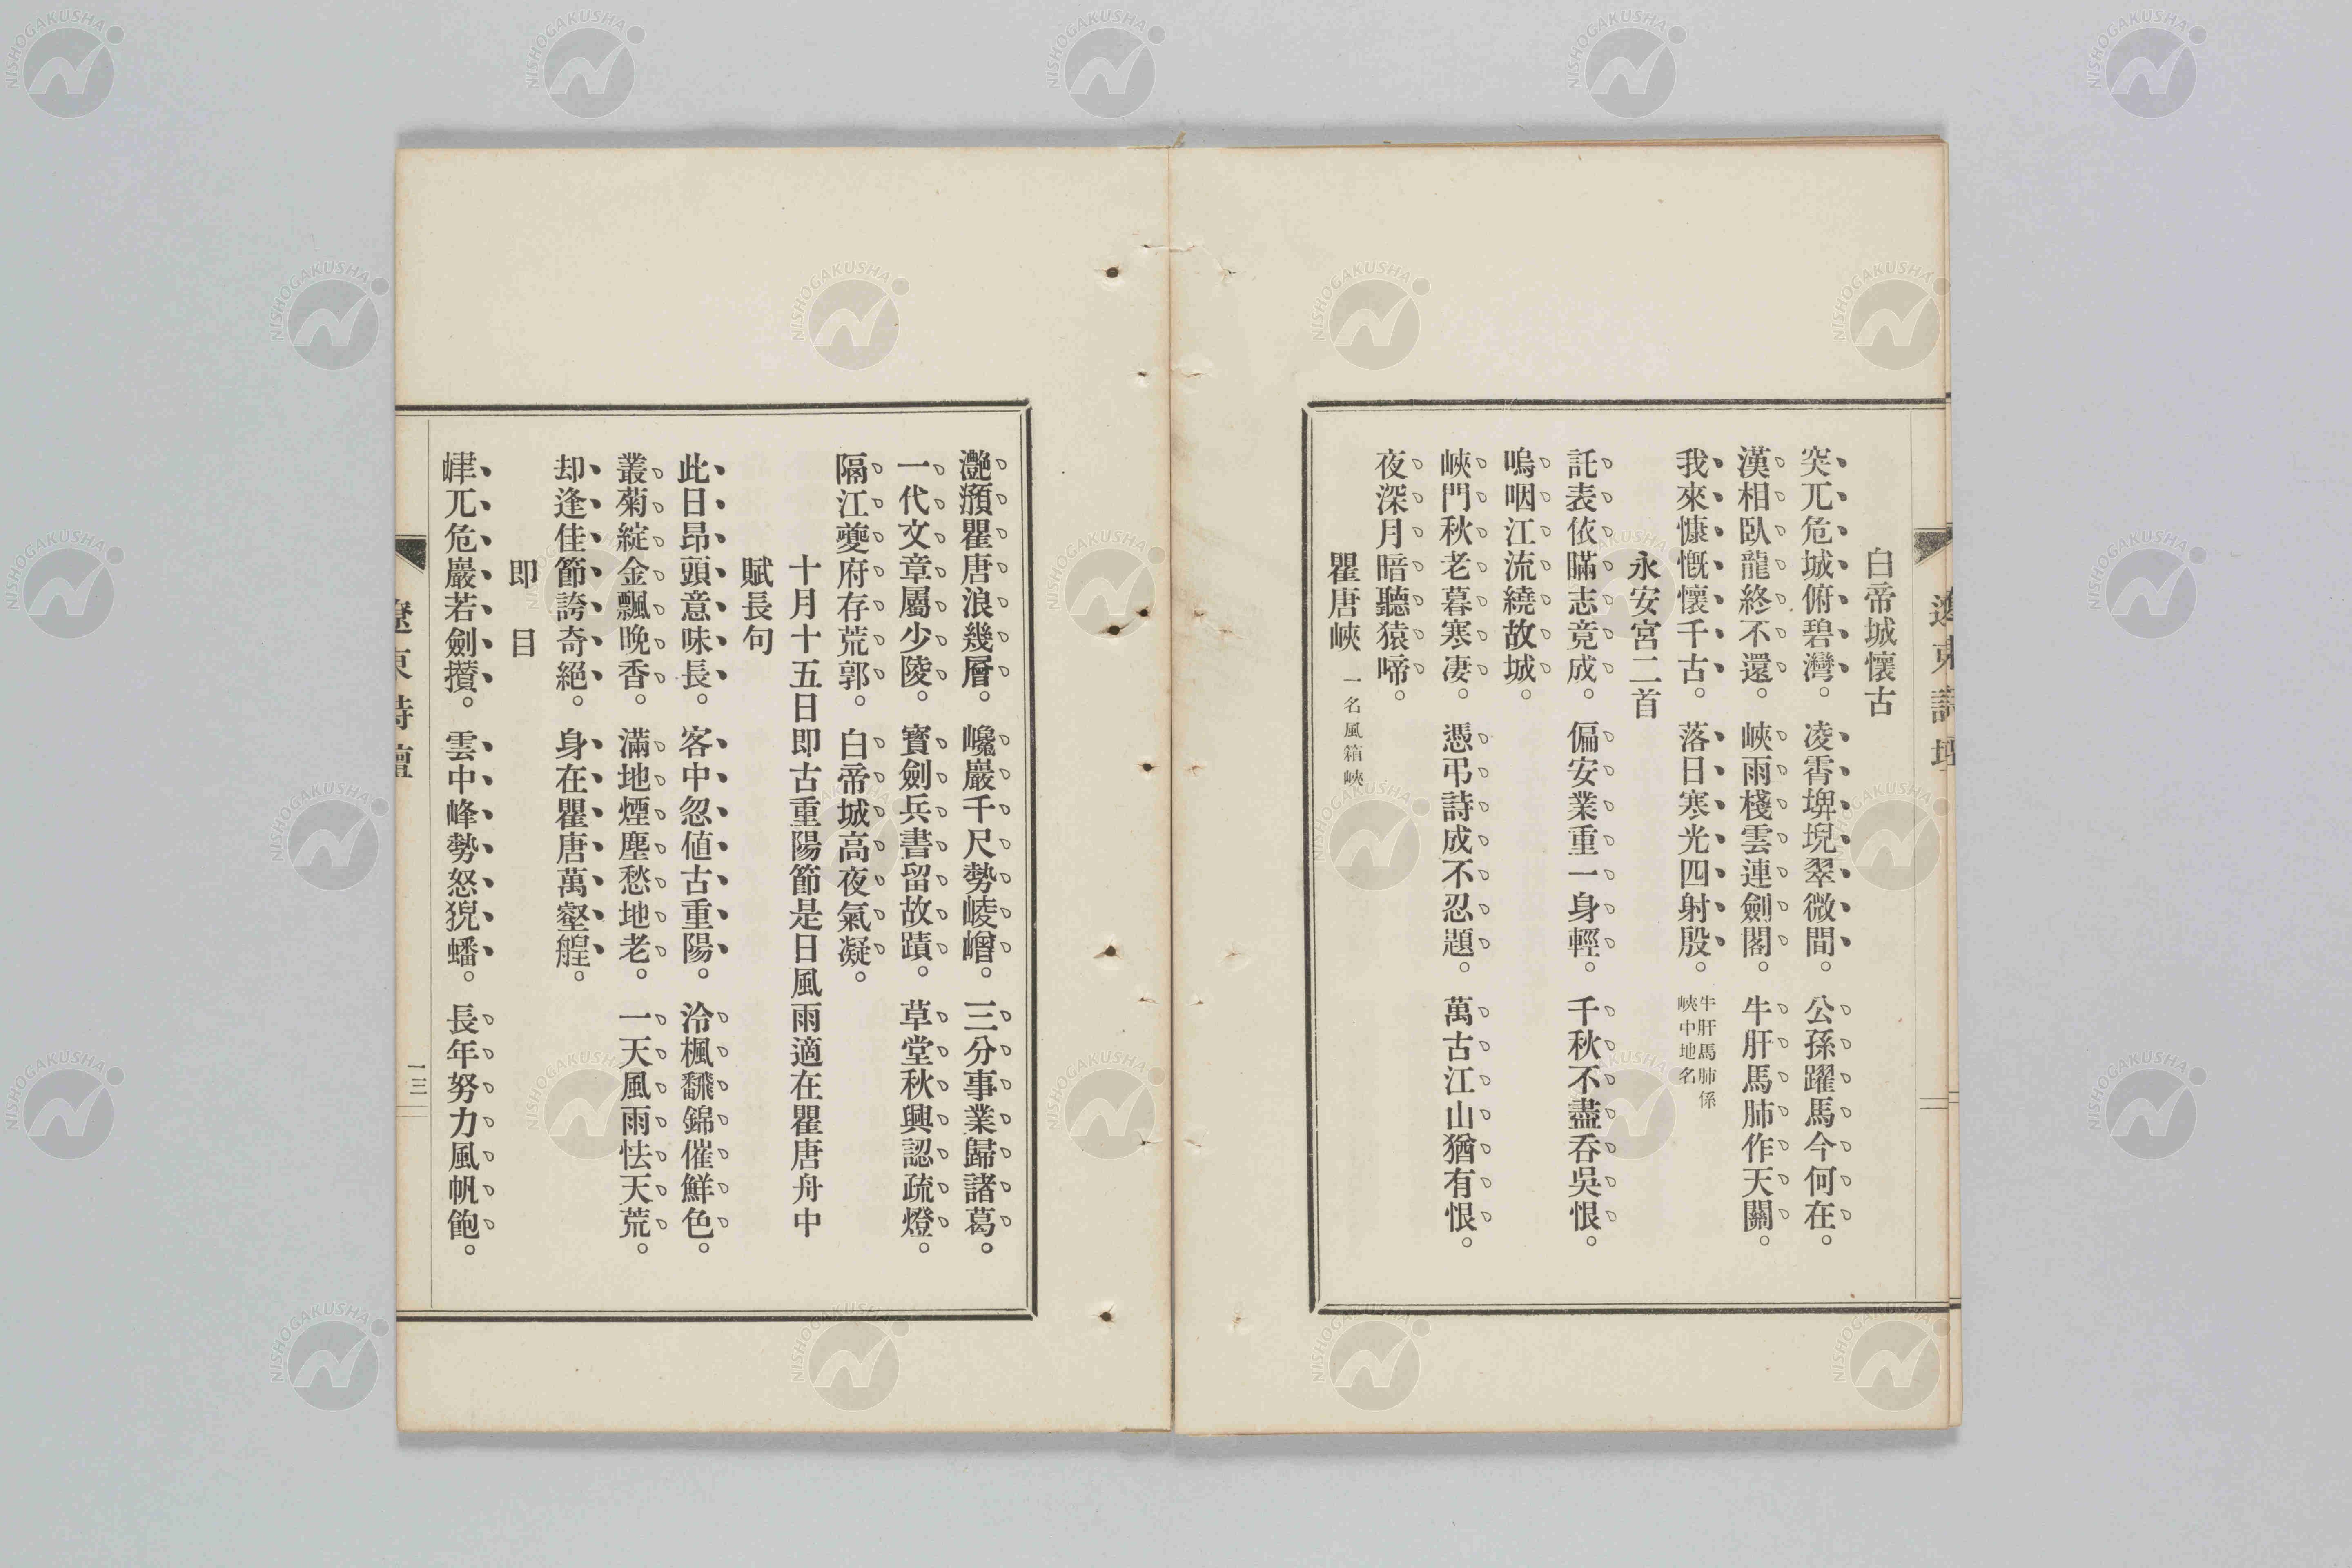 遼東詩壇
白帝城懷古
突兀危城俯碧灣。凌霄埤堄翠微間。公孫躍馬今何在。
漢相臥龍終不還。峽雨棧雲連劍閣。牛肝馬肺作天關。
我來慷慨懷千古。落日寒光四射殷。牛肝馬肺係
峽中地名
永安宮二首
託表依瞞志竟成。偏安業重一身輕。千秋不盡吞吳恨。
嗚咽江流繞故城。
峽門秋老暮寒凄。憑弔詩成不忍題。萬古江山猶有恨。
夜深月暗聽猿啼。
瞿唐峽 一名風箱峽
灔澦瞿唐浪幾層。巉巖千尺勢崚嶒。三分事業歸諸葛。
一代文章屬少陵。寳劍兵書留故蹟。草堂秋興認疏燈。
隔江夔府存荒郭。白帝城高夜氣凝。
十月十五日即古重陽節是日風雨適在瞿唐舟中
賦長句
此日昂頭意味長。客中忽値古重陽。冷楓飜錦催鮮色。
叢菊綻金飄晚香。滿地煙塵愁地老。一天風雨怯天荒。
却逢佳節誇奇絕。身在瞿唐萬壑艎。
即目
峍兀危巖若劍攢。雲中峰勢怒猊蟠。長年努力風帆飽。
遼東詩壇
一三
NISHOGAKUSHA